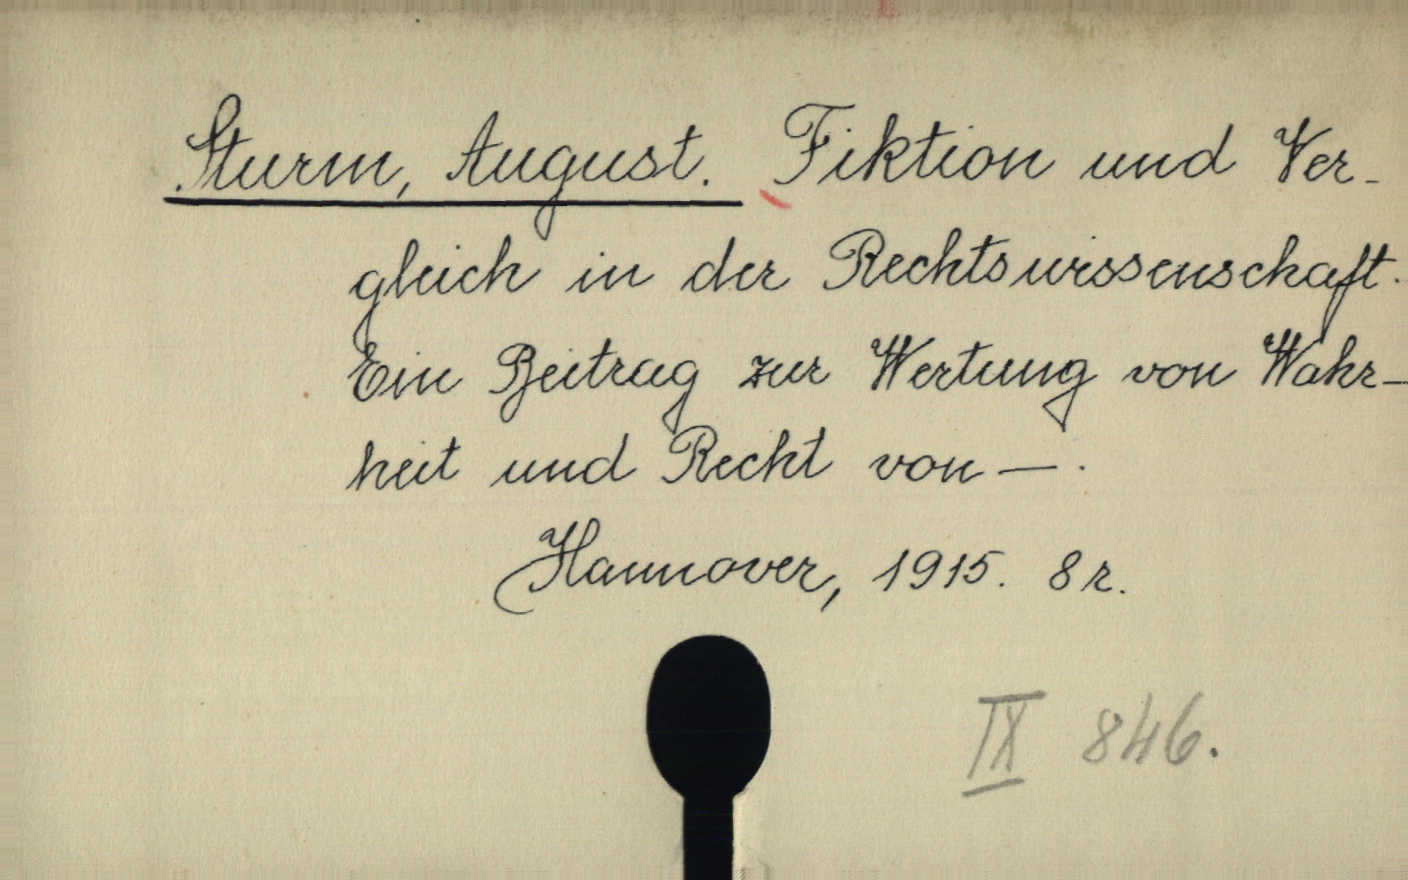 Sturm, August. Fiktion und Ver-
gleich in der Rechtswissenschaft.
Ein Beitrag zur Wertung von Wahr-
heit und Recht von —.
Hannover, 1915. 8r.
IX 846.